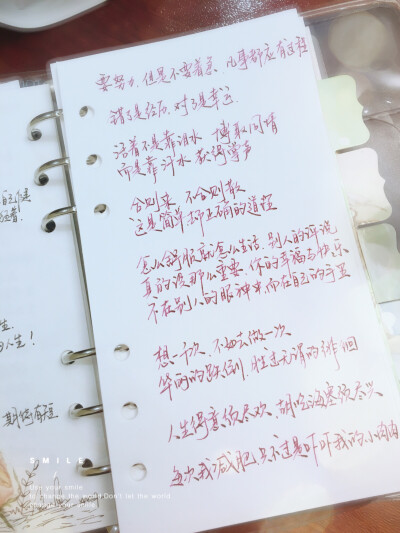 要努力，但是不要着急，凡事都应有过程
错了是经历，对了是幸运
活着不是靠泪水 博取同情
而是靠汗水 获得掌声
合则来，不合则散
这是简单标正确的道理
怎么舒服就怎么生活，别人的评说
真的没那么重要，你的幸福与快乐
不在别人的眼神里，而在自己的手里
想一千次，不如去做一次
华丽的跌倒，胜过无谓的徘徊
人生得意须尽欢，胡吃海塞须尽兴
每次我减肥，只不过是吓吓我的小肉肉
人生！
期待有
SMILE
your smile
to change the world Don't let the world
change your smile